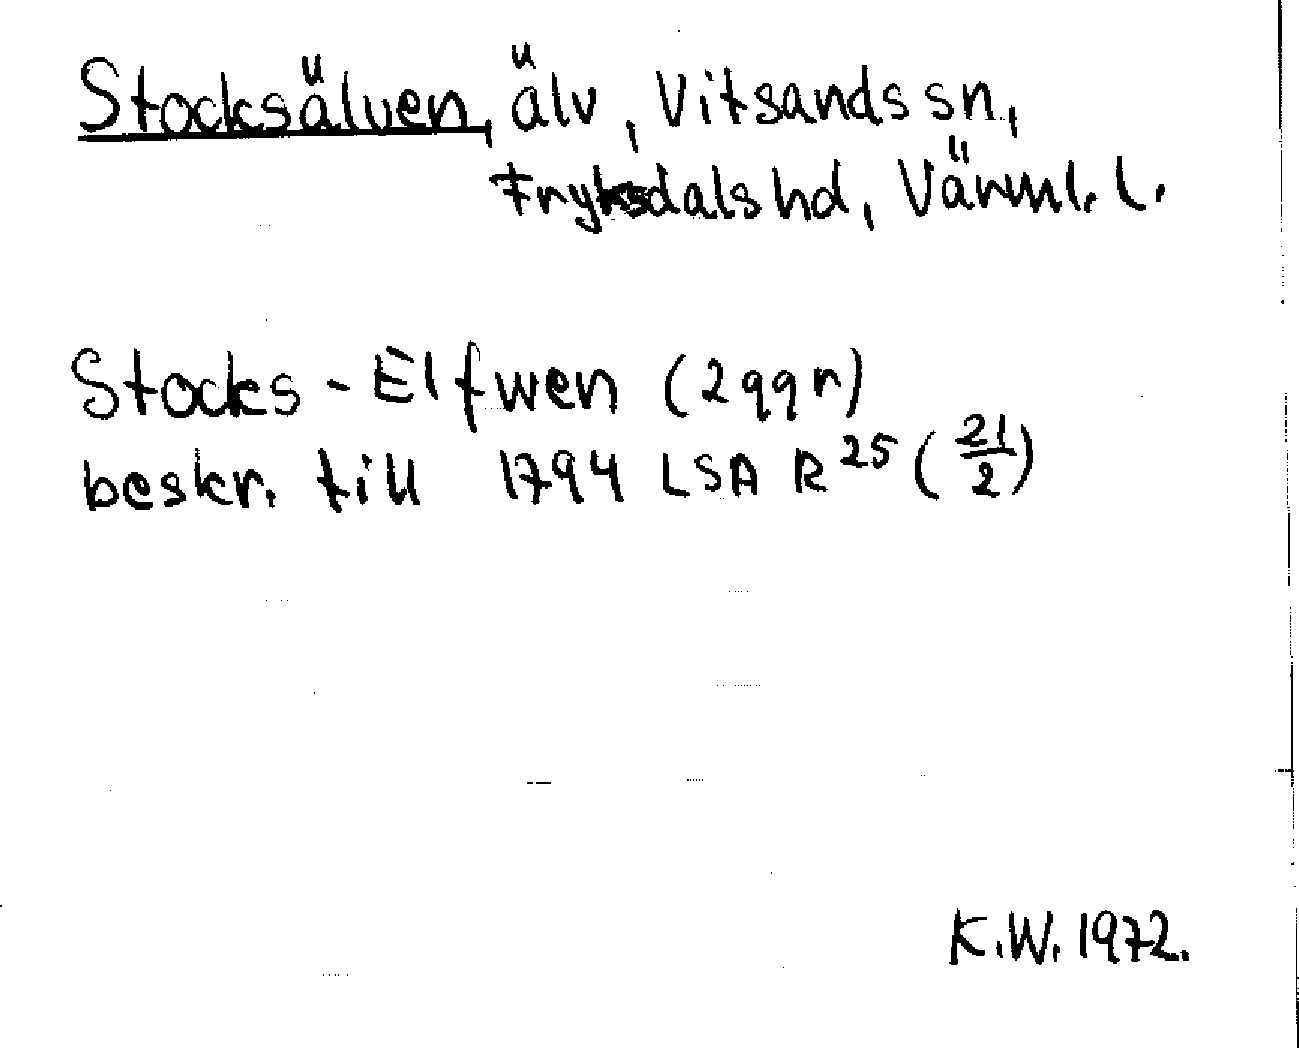 Stocksälven, älv, Vitsands sn,
Fryksdals hd, Värml. l.
Stocks-Elfwen (299r)
beskr. till 1794 LSA R 25 (21/2)
K.W. 1972.